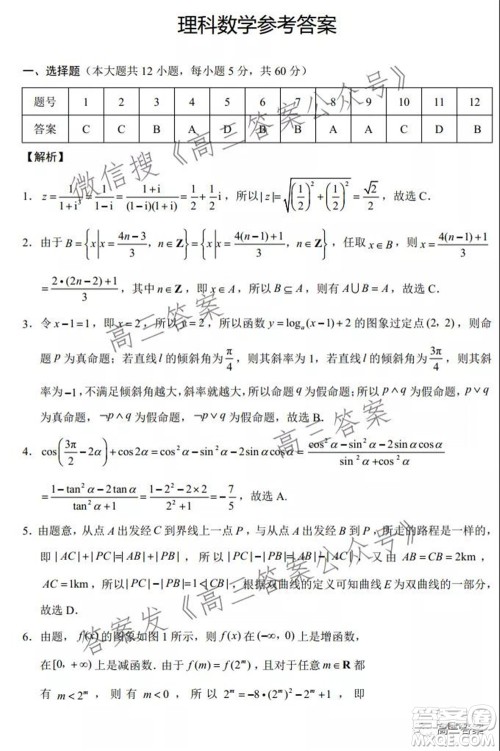 理科数学参考答案
一、选择题（本大题共 12 小题，每小题 5 分，共 60 分）
题号 1 2 3 4 5 6 7 8 9 10 11 12
答案 C C B A D B A C D B A
【解析】
1. z=1/(1+i³)=1/(1-i)=(1+i)/((1-i)(1+i))=1/2+1/2 i，所以|z|=√((1/2)²+(1/2)²)=√2/2，故选 C．
2. 由于 B={x|x=(4n-3)/3，n∈Z}={x|x=(4(n-1)+1)/3，n∈Z}，任取 x∈B，则 x=(4(n-1)+1)/3
=(2·(2n-2)+1)/3，其中 n∈Z，即 x∈A，所以 B⊆A，则有 A∪B=A，故选 C．
3. 令 x-1=1，即 x=2，所以 y=2，所以函数 y=logₐ(x-1)+2 的图象过定点(2，2)，则命
题 p 为真命题；若直线 l 的倾斜角为 π/4，则其斜率为 1，若直线 l 的倾斜角为 3π/4，则其斜
率为-1，不满足倾斜角越大，斜率就越大，所以 q 为假命题；所以 p∧q 为假命题，p∨¬q
为真命题，¬p∧q 为假命题，¬p∨q 为假命题，故选 B．
4. cos(3π/2-2α)+cos2α=cos²α-sin²α-2sinαcosα=(cos²α-sin²α-2sinαcosα)/(sin²α+cos²α)
=(1-tan²α-2tanα)/(tan²α+1)=(1-2²-2×2)/(2²+1)=-7/5，故选 A．
5. 由题意，从点 A 出发经 C 到界线上一点 P，与从点 A 出发经 B 到 P，所走的路程是一样的，
即 |AC|+|PC|=|AB|+|PB|，所以 |PC|-|PB|=|AB|-|AC|，又由 AB=CB=2km，
AC=1km，所以 |PC|-|PB|=1<|CB|，根据双曲线的定义可知曲线 E 为双曲线的一部分，
故选 D．
6. 由题，f(x)的图象如图 1 所示，则 f(x) 在(-∞，0) 上是增函数，
在[0，+∞)上是减函数．由于 f(m)=f(2ᵐ)，且对于任意 m∈R 都
有 m<2ᵐ，则有 m<0，所以 2ᵐ=-8•(2ᵐ)²-2ᵐ+1，即
微信搜《高三答案公众号》
高三答案
高三答案
答案发《高三答案公众号》
高三答案